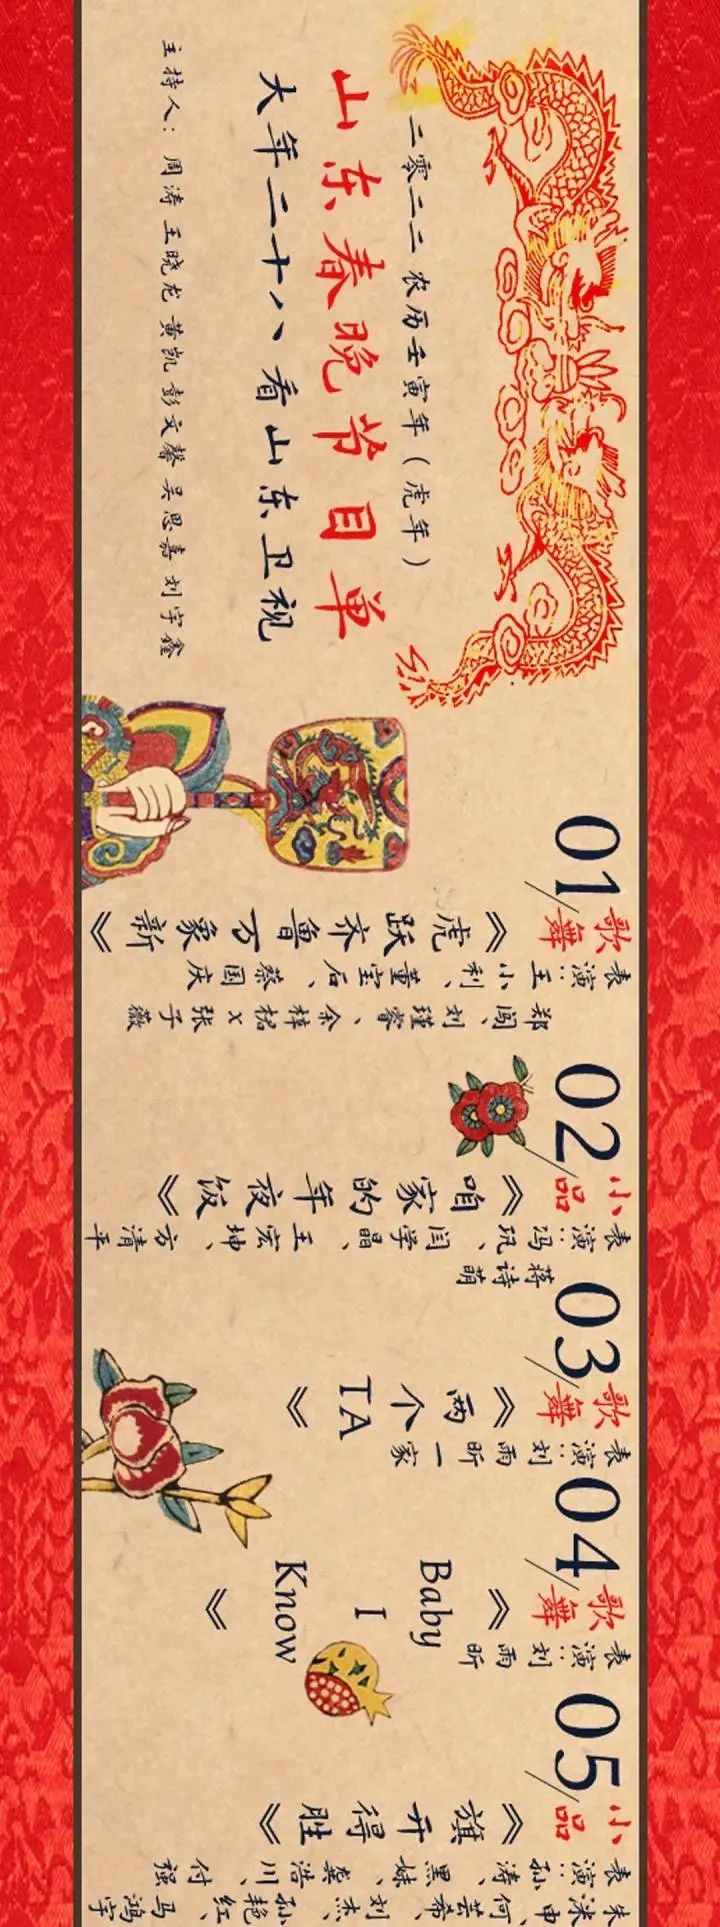 二零二二 农历壬寅年（虎年）
山东春晚节目单
大年二十八 看山东卫视
主持人：周涛 王晓龙 黄凯 彭文馨 吴思嘉 刘宇鑫
01/歌舞
《虎跃齐鲁万象新》
表演：王小利、董宝石、蔡国庆
郑闯、刘瑾睿、余梓桾X张子薇
02/小品
《咱家的年夜饭》
表演：冯巩、闫学晶、王宏坤、方清平
蒋诗萌
03/歌舞
《两个TA》
表演：刘雨昕一家
04/歌舞
《Baby I Know》
表演：刘雨昕
05/小品
《旗开得胜》
表演：孙涛、黑妹、龚浩川、付强
朱洣申、何芸希、刘杰、孙艳红、马鸿宇